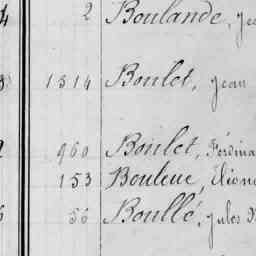 4 2 Boulande, Jea
3 1314 Boulet, Jean
960 Boulet, Ferdina
153 Bouleuc, Éléono
56 Boullé, Jules